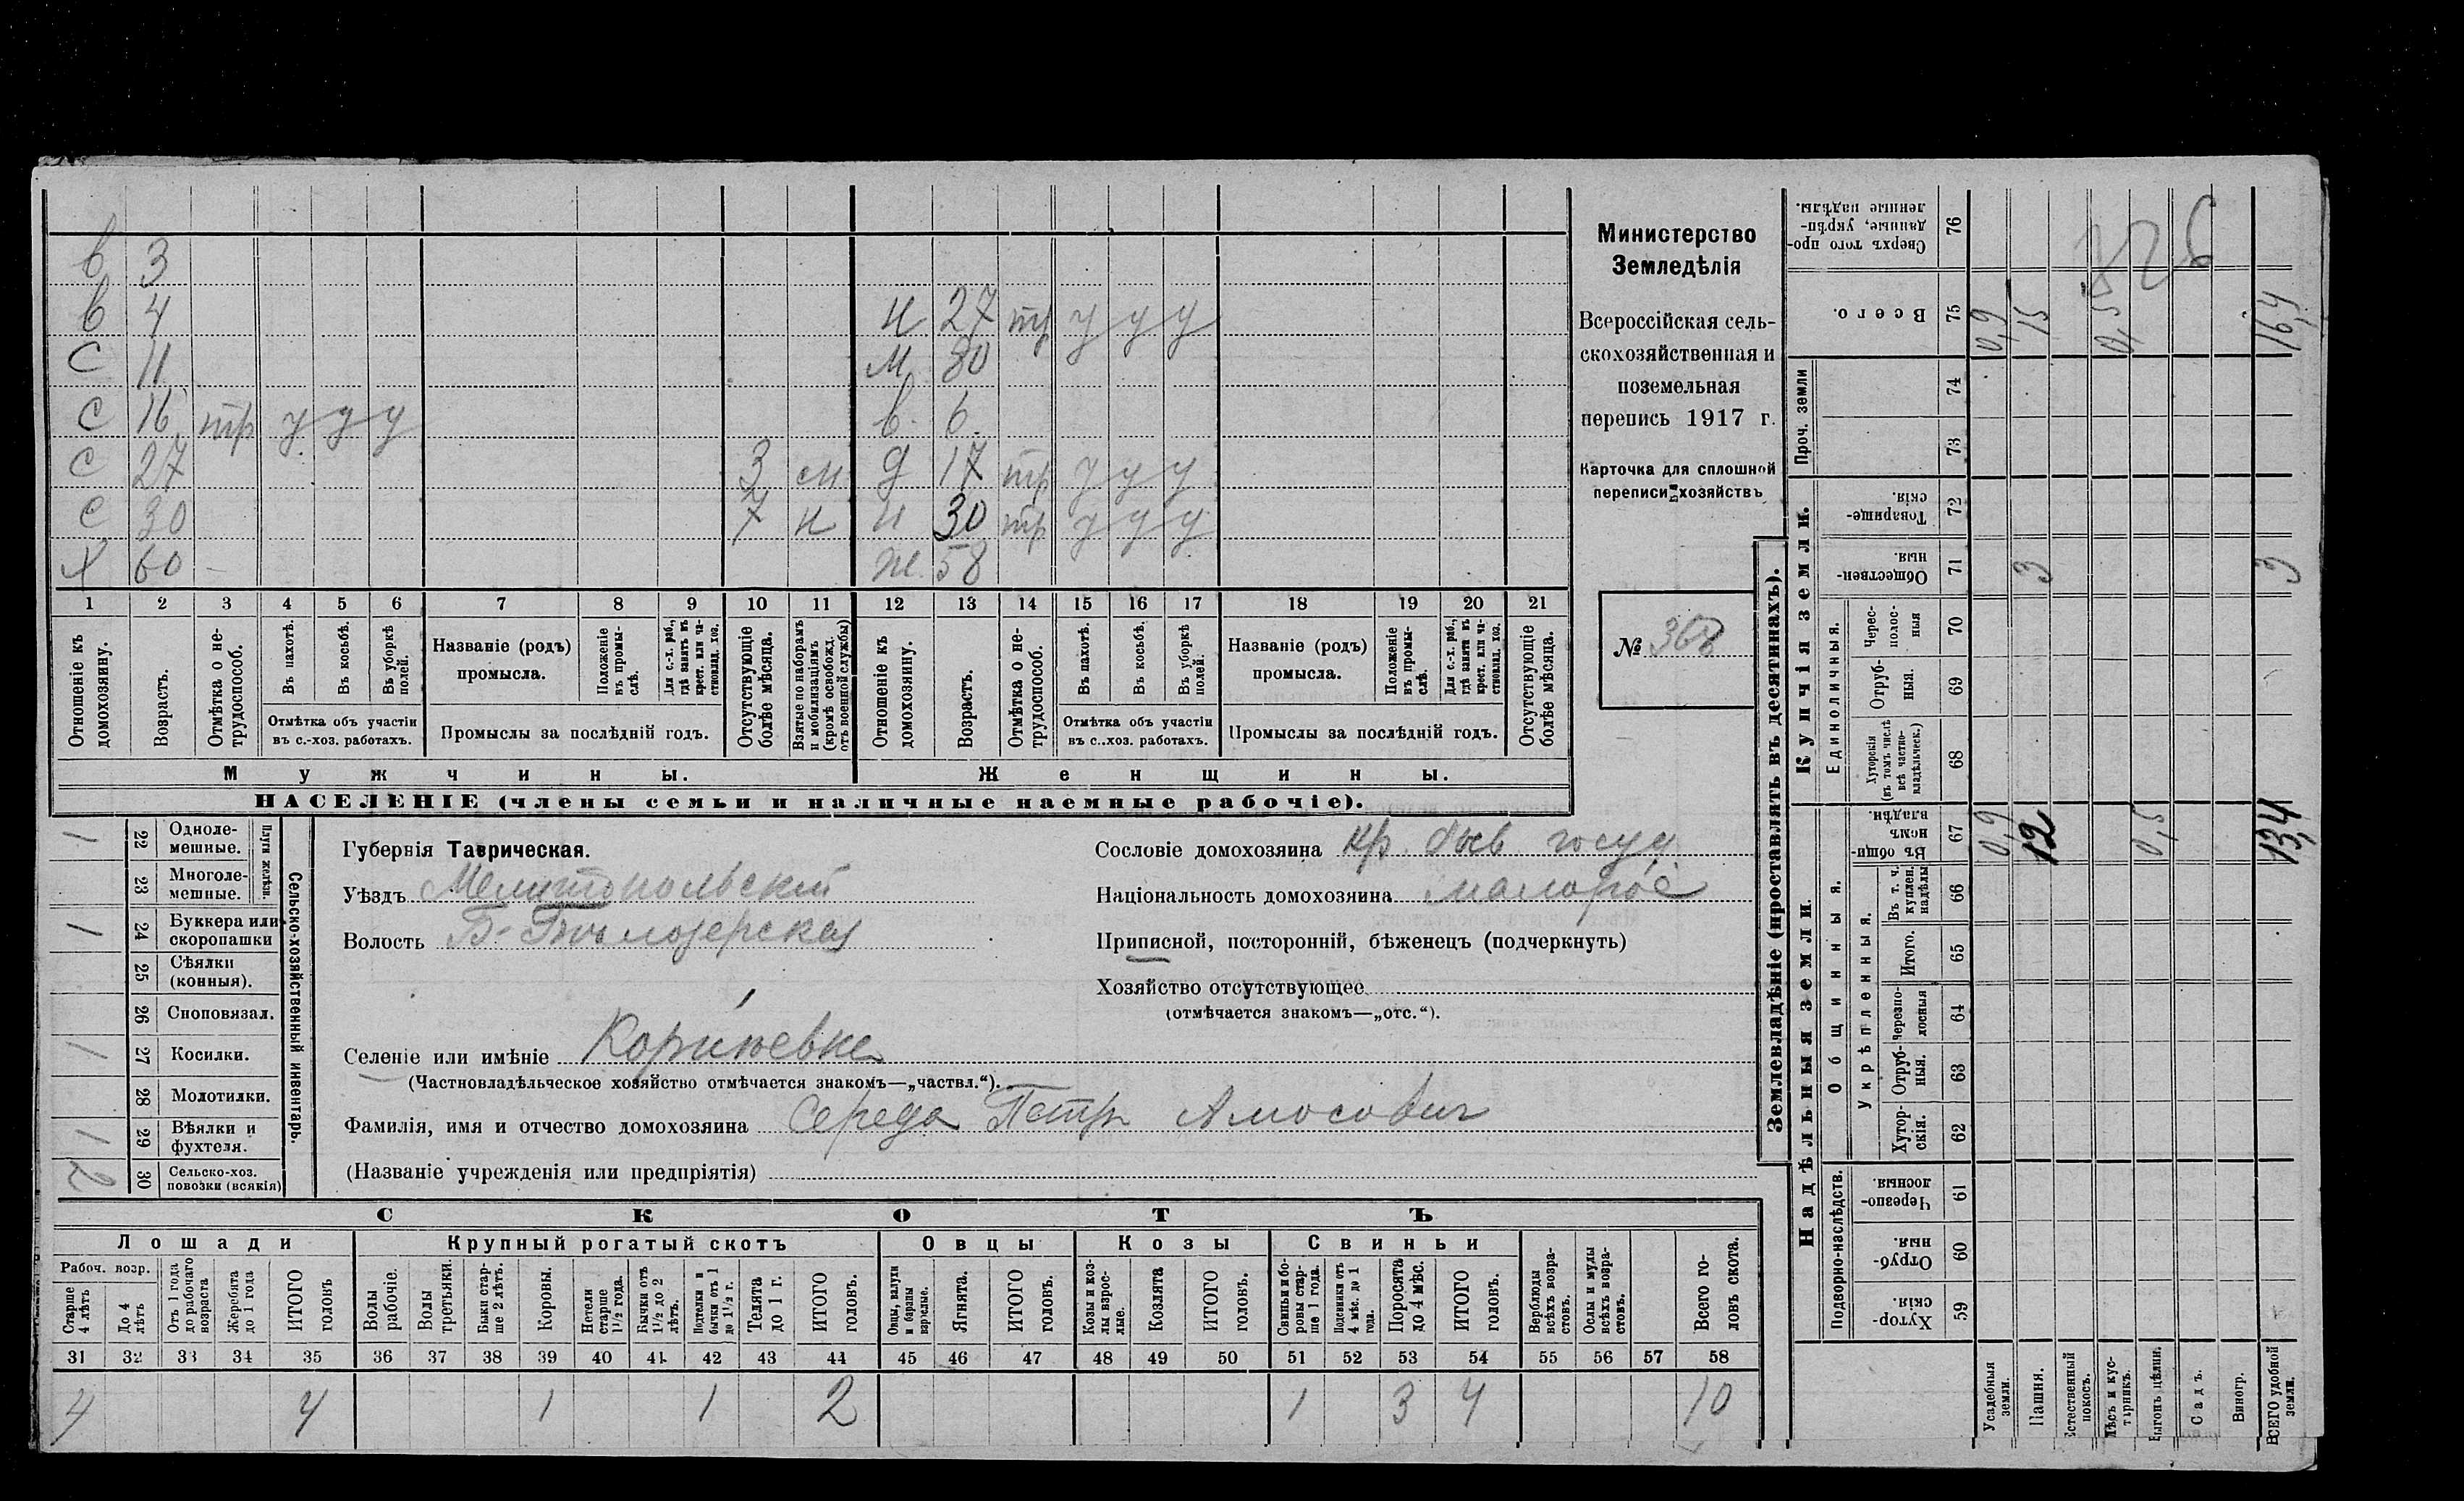 в 3
в 4 н 27 тр у у у
с 11 м 80
с 16 тр у у у в. 6.
с 27 3 м д 17 тр у у у
с 30 7 н н 30 тр у у у
х 60 - ж. 58
1 2 3 4 5 6 7 8 9 10 11 12 13 14 15 16 17 18 19 20 21
Отношеніе къ домохозяину.
Возрастъ.
Отмѣтка о не-трудоспособ.
Въ пахотѣ.
Въ косьбѣ.
Въ уборкѣ полей.
Отмѣтка объ участіи
въ с.-хоз. работахъ.
Названіе (родъ)
промысла.
Положеніе въ промы-слѣ.
Для с.-х. раб., гдѣ занятъ въ крест. или ча-стновлад. хоз.
Промыслы за послѣдній годъ.
Отсутствующіе болѣе мѣсяца.
Взятые по наборамъ и мобилизаціямъ (кромѣ освобожд. отъ военной службы)
Отношеніе къ домохозяину.
Возрастъ.
Отмѣтка о не-трудоспособ.
Въ пахотѣ.
Въ косьбѣ.
Въ уборкѣ полей.
Отмѣтка объ участіи
въ с.-хоз. работахъ.
Названіе (родъ)
промысла.
Положеніе въ промы-слѣ.
Для с.-х. раб., гдѣ заняты въ крест. или ча-стновлад. хоз.
Промыслы за послѣдній годъ.
Отсутствующіе болѣе мѣсяца.
Мужчины. Женщины.
НАСЕЛЕНІЕ (члены семьи и наличные наемные рабочіе).
Министерство
Земледѣлія
Всероссійская сель-
скохозяйственная и
поземельная
перепись 1917 г.
Карточка для сплошной
переписи хозяйствъ
№ 368
Сельско-хозяйственный инвентарь.
Плуги желѣзн.
1 22 Одноле-мешные.
23 Многоле-мешные.
1 24 Буккера или скоропашки
25 Сѣялки (конныя).
26 Сноповязал.
1 27 Косилки.
28 Молотилки.
1 29 Вѣялки и фухтеля.
2 30 Сельско-хоз. повозки (всякія)
Губернія Таврическая.
Уѣздъ Мелитопольскій
Волость Б-Бѣлозерская
Селеніе или имѣніе
(Частновладѣльческое хозяйство отмѣчается знакомъ—„частвл.“).
Фамилія, имя и отчество домохозяина Середа Петр Амосович
(Названіе учрежденія или предпріятія)
Сословіе домохозяина кр. быв госуд.
Національность домохозяина малорос
Приписной, посторонній, бѣженецъ (подчеркнуть)
Хозяйство отсутствующее
(отмѣчается знакомъ—„отс.“).
СКОТЪ
Лошади Крупный рогатый скотъ Овцы Козы Свиньи
Рабоч. возр.
Старше 4 лѣтъ
До 4 лѣтъ
Отъ 1 года до рабочаго возраста
Жеребята до 1 года
ИТОГО головъ
Волы рабочіе.
Волы третьяки.
Быки стар-ше 2 лѣтъ.
Коровы.
Нетели старше 1½ года.
Бычки отъ 1½ до 2 лѣтъ.
Подтелки и бычки отъ 1 до 1½ г.
Телята до 1 г.
ИТОГО головъ.
Овцы, валухи и бараны взрослые.
Ягнята.
ИТОГО головъ.
Козы и коз-лы взрос-лые.
Козлята
ИТОГО головъ.
Свиньи и бо-ровы стар-ше 1 года.
Подсвинки отъ 4 мѣс. до 1 года.
Поросята до 4 мѣс.
ИТОГО головъ.
Верблюды всѣхъ возра-стовъ.
Ослы и мулы всѣхъ возра-стовъ.
Всего го-ловъ скота.
31 32 33 34 35 36 37 38 39 40 41 42 43 44 45 46 47 48 49 50 51 52 53 54 55 56 57 58
4 4 1 1 2 1 3 4 10
Землевладѣніе (проставлять въ десятинахъ).
Надѣльныя земли. Купчія земли. Проч. земли
Подворно-наслѣдств.
Общинныя.
Укрѣпленныя.
Единоличныя.
Хутор-скія. 59
Отруб-ныя. 60
Черезпо-лосныя 61
Хутор-скія. 62
Отруб-ныя. 63
Черезпо-лосныя 64
Итого. 65
Въ т. ч. куплен. надѣлы 66
Въ общин-номъ владѣн. 67
Хуторскія (въ томъ числѣ всѣ частно-владѣльческ.) 68
Отруб-ныя. 69
Черес-полос-ныя 70
Обществен-ныя. 71
Товарище-скія. 72
73
74
Всего. 75
Сверхъ того про-данные, укрѣп-ленные надѣлы. 76
Усадебныя земли. 0,9 0,9
Пашня. 12 3 15
Естественный покосъ.
Лѣсъ и кус-тарникъ.
Выгонъ цѣлин. 0,5
0,5
Садъ.
Виногр.
ВСЕГО удобной земли. 13,4 3 16,4